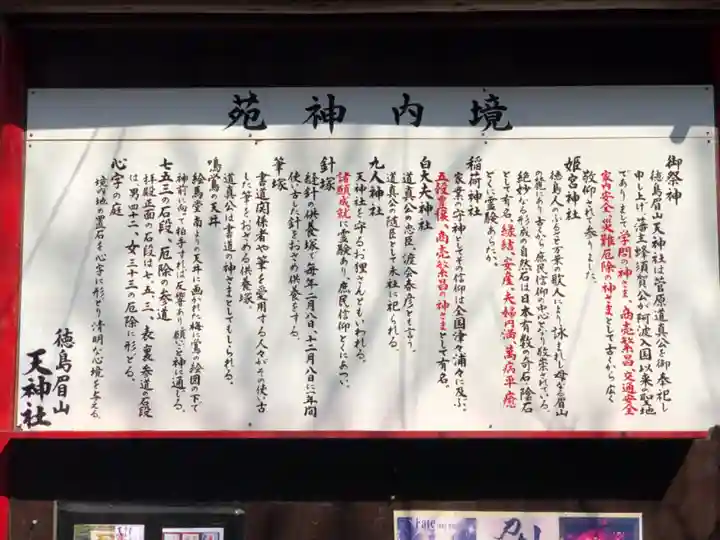 境内神苑
御祭神
徳島眉山天神社は菅原道真公を御奉祀し
申し上げ藩主蜂須賀公が阿波入国以来聖地
でありまして学問の神さま、商売繁昌、交通安全
家内安全、災難厄除の神さまとして古くから広く
敬仰されて参りました。
姫宮神社
徳島人のふるさと万葉の歌人により詠まれし母なる眉山
の麓にあり古くから庶民信仰の中心となり敬崇されている。
絶妙なる形成の自然石は日本有数の奇石・陰石
として有名、縁結・安産・夫婦円満、萬病平癒
とくに霊験あらたか。
稲荷神社
家業の守神としてその信仰は全国津々浦々に及ぶ。
五穀豊穣、商売繁昌の神さまとして有名。
白太夫神社
道真公の忠臣、渡会春彦ともいう。
道真公の随臣として末社に祀られる。
九人神社
天神社を守るお狸さんともいわれる。
諸願成就に霊験あり、庶民信仰とくにあつい。
針塚
縫針の供養塚で毎年二月八日、十二月八日に一年間
使い古した針をおさめ供養をする。
筆塚
書道関係者や筆を愛用する人々がその使い古
した筆をおさめる供養塚。
道真公は書道の神さまとしてもしられる。
鳴鴬の天井
絵馬堂南よりの天井に画かれた梅に鴬の絵図の下で
神前に向って拍手すれば反響あり願いごと神に通じる。
七五三の石段、厄除の参道
拝殿正面の石段は七五三、表裏参道の石段
は男四十二、女三十三の厄除に形どる。
心字の庭
境内地の置石を心字に形どり清明な心境を与える。
徳島眉山
天神社
Fate